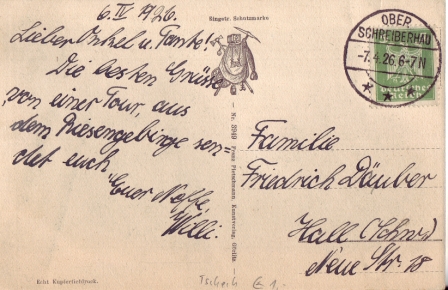 6. IV 1926.
Lieber Onkel u. Tante!
Die besten Grüsse
von einer Tour, aus
dem Riesengebirge sen-
det euch
Euer Neffe,
Willi.
Echt Kupfertiefdruck.
Eingetr. Schutzmarke
Nr. 3949 Franz Pietschmann, Kunstverlag, Görlitz.
OBER
SCHREIBERHAU
-7.4.26.6-7N
Deutsches
Reich
Familie
Friedrich Däuber
Hall (Schwd
Neue Str. 18
Tschech